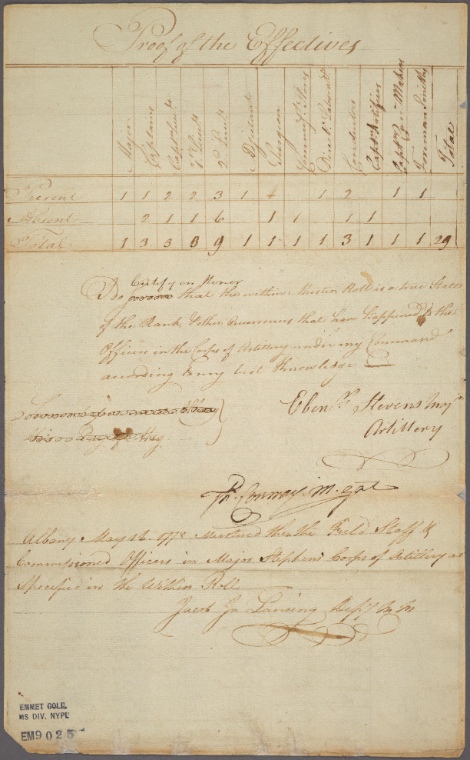 Proof of the Effectives
Major Captains Capt Lieuts 1st Lieuts 2d Lieuts Adjutant Surgeon Conductor Capt Artificers Foreman Smiths Total
Present 1 1 2 2 3 1 1 2 1 1
Absent 2 1 1 6 1 1 1 1
Total 1 3 3 3 9 1 1 1 1 3 1 1 1 29
Certify on Honor
Do that the within Muster Roll is a true State
of the Rank & other that have happened to the
Officers in the Corps of Artillery under my Command
according to my best Knowledge
Ebenr Stevens Majr
Artillery
Albany May 1778 Mustered then the Field Staff &
Commissioned Officers in Major Stephens Corps of Artillery as
Specified in the Within Roll
Jacob Jn Lansing Depy M M
EMMET COLL.
MS DIV. NYPL
EM9025